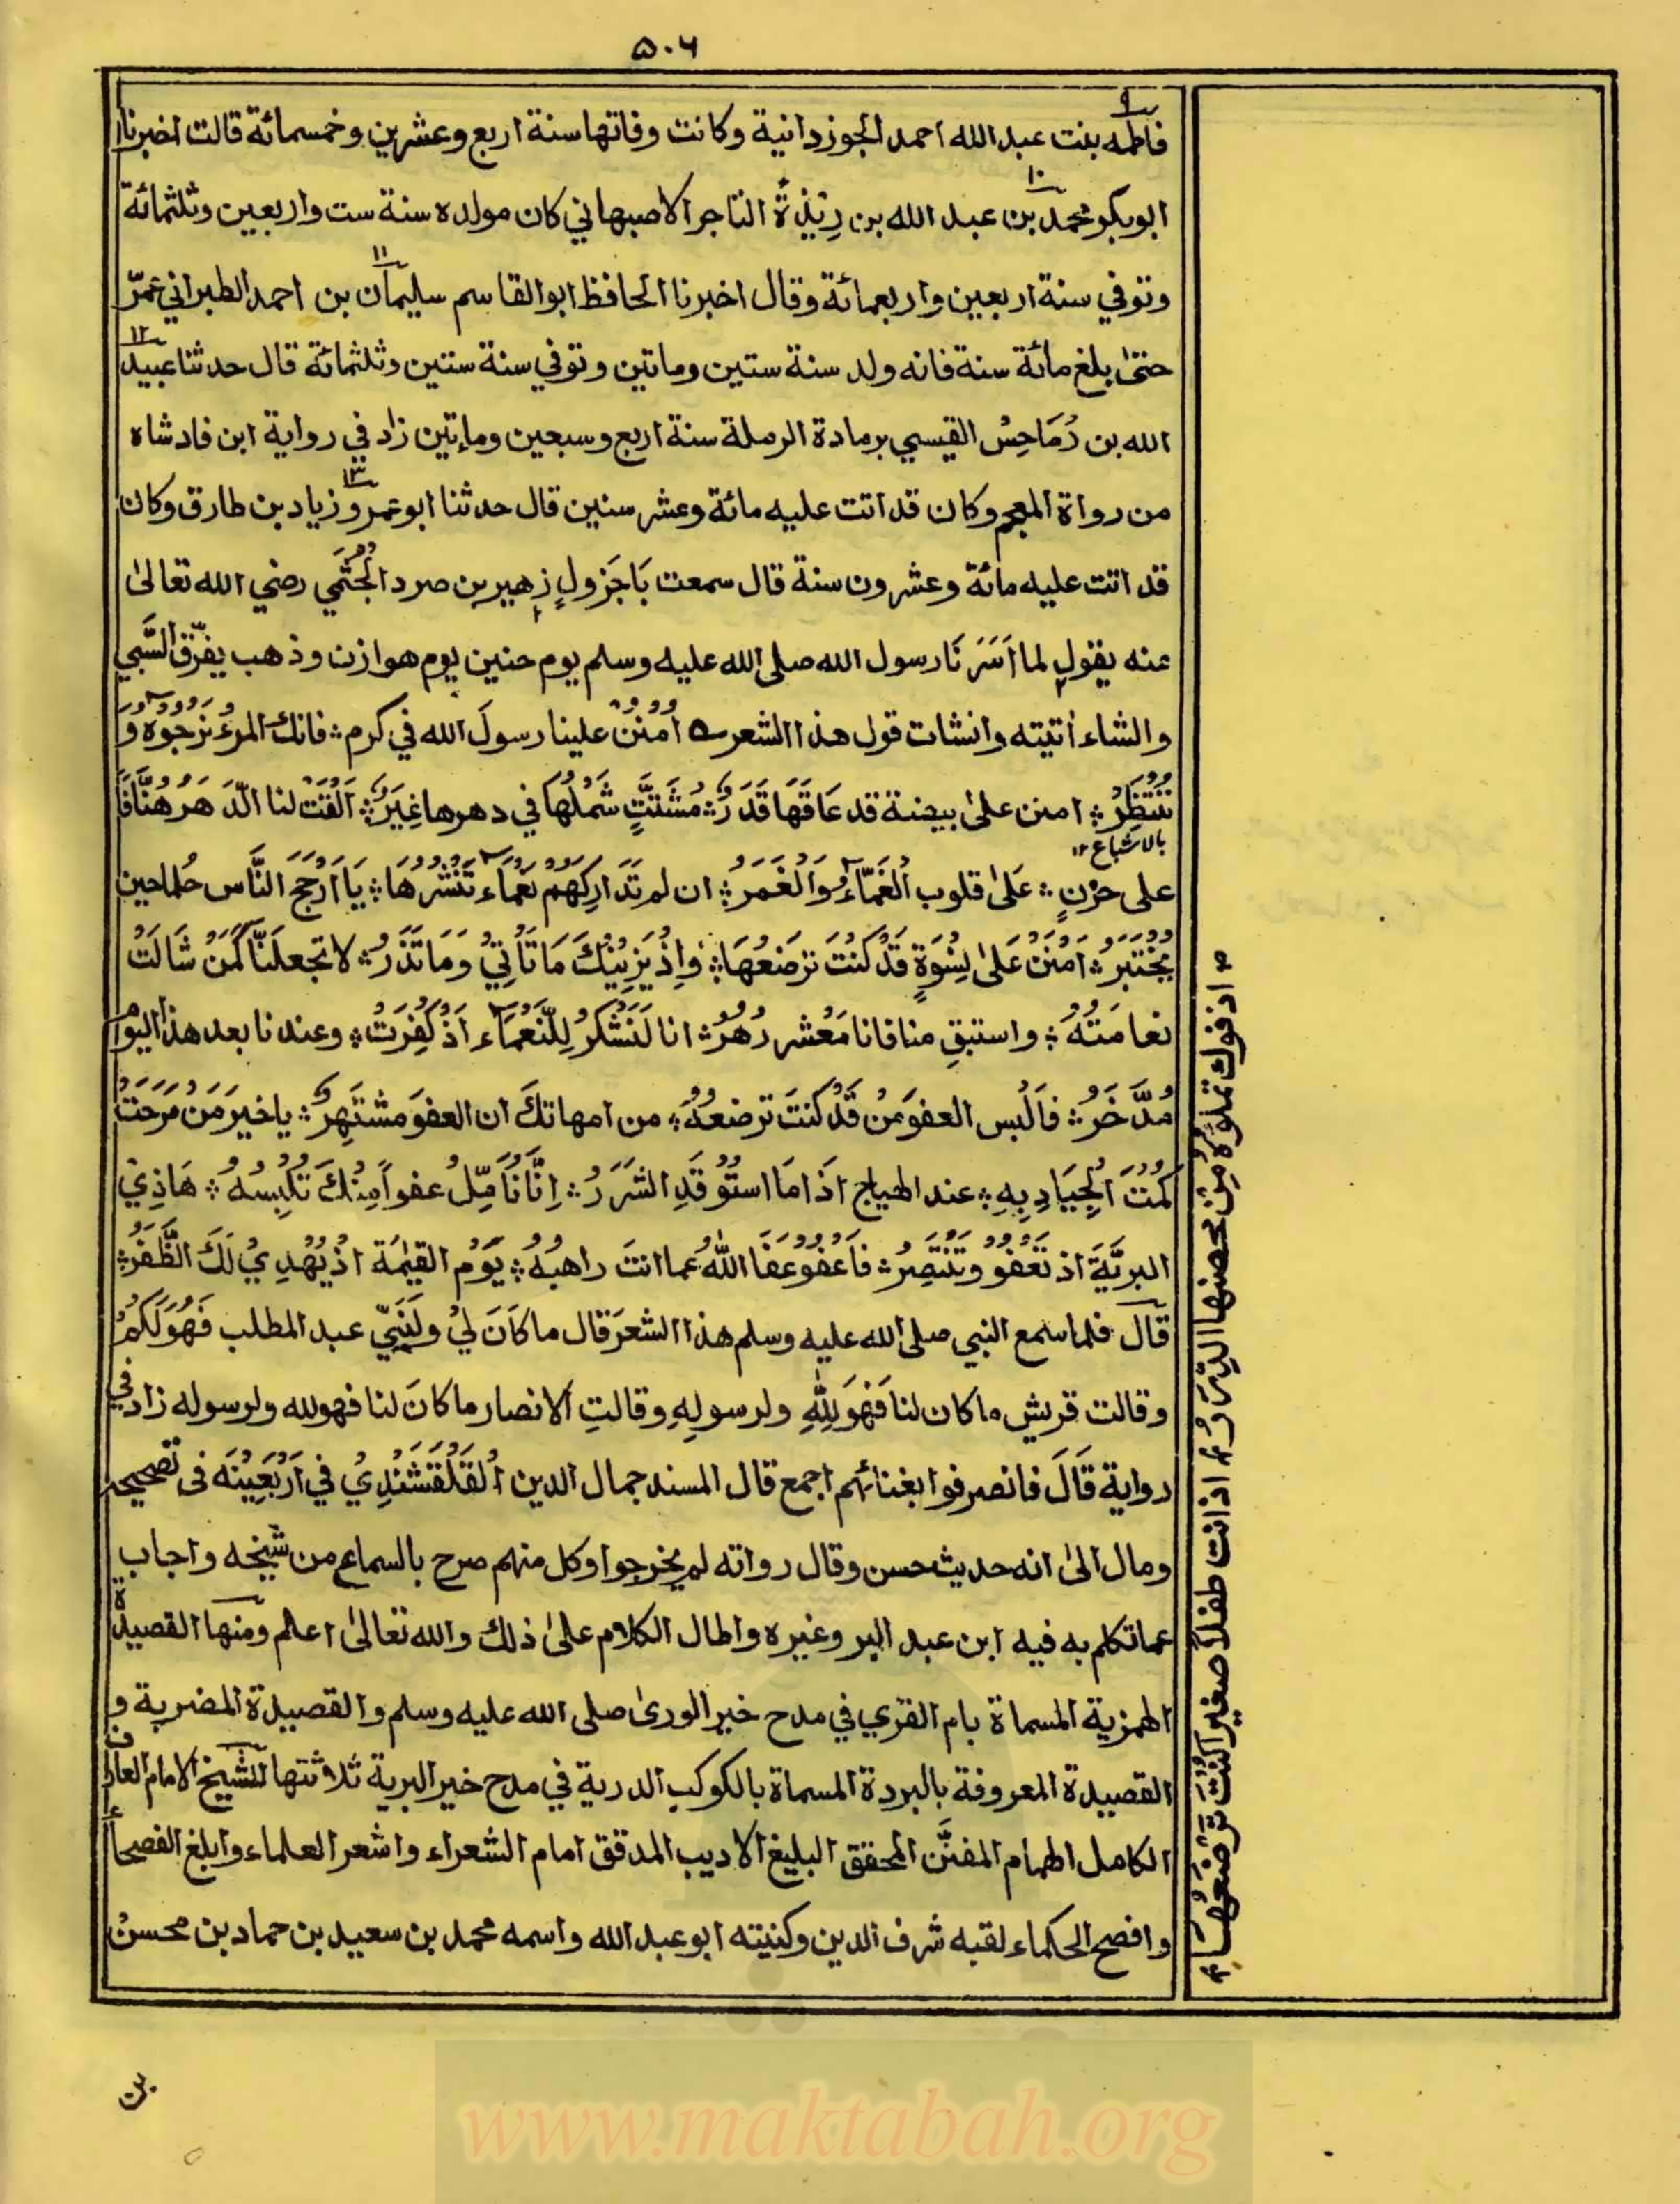 ۵۰۶
۹
فاطمه بنت عبد الله احمد الجوزدانية وكانت وفاتها سنة اربع وعشرين وخمسمائة قالت اخبرنا
۱۰
ابوبكر محمد بن عبد الله بن رِيْذَةَ التاجر الاصبهاني كان مولده سنة ست واربعين وثلثمائة
۱۱
وتوفي سنة اربعين واربعمائة وقال اخبرنا الحافظ ابوالقاسم سليمان بن احمد الطبراني عمّر
۱۲
حتىٰ بلغ مائة سنة فانه ولد سنة ستين وماتين وتوفي سنة ستين وثلثمائة قال حدثنا عبيد
الله بن رُمَاحِسْ القيسي برمادة الرملة سنة اربع وسبعين ومايتين زاد في رواية ابن فادشاه
۱۳
من رواة المعجم وكان قد اتت عليه مائة وعشر سنين قال حدثنا ابو عمرو زياد بن طارق وكان
قد اتت عليه مائة وعشرون سنة قال سمعت بَاجَرْولٍ زهير بن صرد الْجُشَمِي رضي الله تعالىٰ
عنه يقول لما اَسَرَنَا رسول الله صلى الله عليه وسلم يوم حنين يوم هوازن وذهب يفرّق السَّبي
والشاء اتيته وانشات قول هذا الشعر ۵ اُمْنُنْ علينا رسولَ الله في كرم ؞ فانك المرءُ نَرْجُوْهُ وَ
نَنْتَظِرُ ؞ امنن علىٰ بيضة قد عَاقَهَا قَدَرٌ ؞ مُشَتَّتٍ شَمْلُهَا في دهرها غِيَرٌ ؞ اَلْقَتْ لنا الدَّهَرُ هُتَّافًا
بالاشباع ۱۲
على حزنٍ ؞ عَلىٰ قلوب الْغَمَّاءُ وَالْغَمَرُ ؞ ان لم تَدَارِكهُمْ نَعْمَاء تَنْشُرُهَا ؞ يَا اَرْجَحَ النَّاس حُلما حين
يُخْتَبَرُ ؞ اُمْنُنْ عَلىٰ نِسْوَةٍ قَدْ كنْتَ تَرضَعُهَا ؞ وَاِذْ يَزِيْنُكَ مَا تَأْتِيْ وَمَا تَذَرُ ؞ لا تجعلَنَّا كَمَنْ شَالَتْ
نعامَتُهُ ؞ واستبقِ منا فانا مَعْشر زُهُرُ ؞ انا لَنَشْكُرُ لِلنَّعْمَاء اَذْ كُفِرَتْ ؞ وعندنا بعد هذا اليوم
مُدَّخَرُ ؞ فاَلْبس العفوَ مَنْ قَدْ كنتَ ترضعهُ ؞ من امهاتكَ ان العفوَ مشتَهِرٌ ؞ يا خيرَ مَنْ مَرَحَتْ
كُمْتُ الْجِيَادِ بِهِ ؞ عند الهياج اذَا مَا اسْتُوْقِدَ الشَرَرُ ؞ اِنَّا نُأَمِّلُ عفواً مِنْكَ تُلْبِسُهُ ؞ هَاذِي
البرِيَّةَ اذ تَعْفُوْ وتَنْتَصِرُ ؞ فَاعْفُوْ عَفَا اللهُ عما انتَ راهبُهُ ؞ يَوْمَ القيٰمَة اذْ يُهْدِيْ لَكَ الظَّفَرُ ؞
قَالَ فلما سمع النبي صلى الله عليه وسلم هذا الشعرَ قال ما كَانَ لِيْ ولِبَنِيّ عبد المطلب فَهُوَ لَكُمْ
وقالت قريش ما كان لنا فَهُوَ لِلّٰهِ ولرسولِهِ وقالتِ الانصار ما كانَ لنا فهو لله ولرسوله زاد في
رواية قَالَ فانصرفوا بغنائمهم اجمع قال المسند جمال الدين الْقَلْقَشَنْدِيُ في اَرْبَعِيْنَه فى تصحيحه
ومال الىٰ انه حديث حسن وقال رواته لم يخرجوا وكل منهم صرح بالسماع من شيخه واجاب
عما تكلم به فيه ابن عبد البر وغيره واطال الكلام علىٰ ذلك والله تعالىٰ اعلم ومنها القصيدة
الهمزية المسماة بام القرٰي في مدح خير الورىٰ صلى الله عليه وسلم والقصيدة المضرية و
القصيدة المعروفة بالبردة المسماة بالكوكب الدرية في مدح خير البرية ثلاثتها للشيخ الامام العارف
الكامل الهمام المفنَّن المحقق البليغ الاديب المدقق امام الشعراء واشعر العلماء وابلغ الفصحاء
وافصح الحكماء لقبه شرف الدين وكنيته ابو عبد الله واسمه محمد بن سعيد بن حماد بن محسن
اذ فوك تملؤه من محضها الدِّرَرُ ۱۲ اذ انت طفلاً صغيرا كنْتَ تَرْضَعُهَا ۱۲
بن
www.maktabah.org